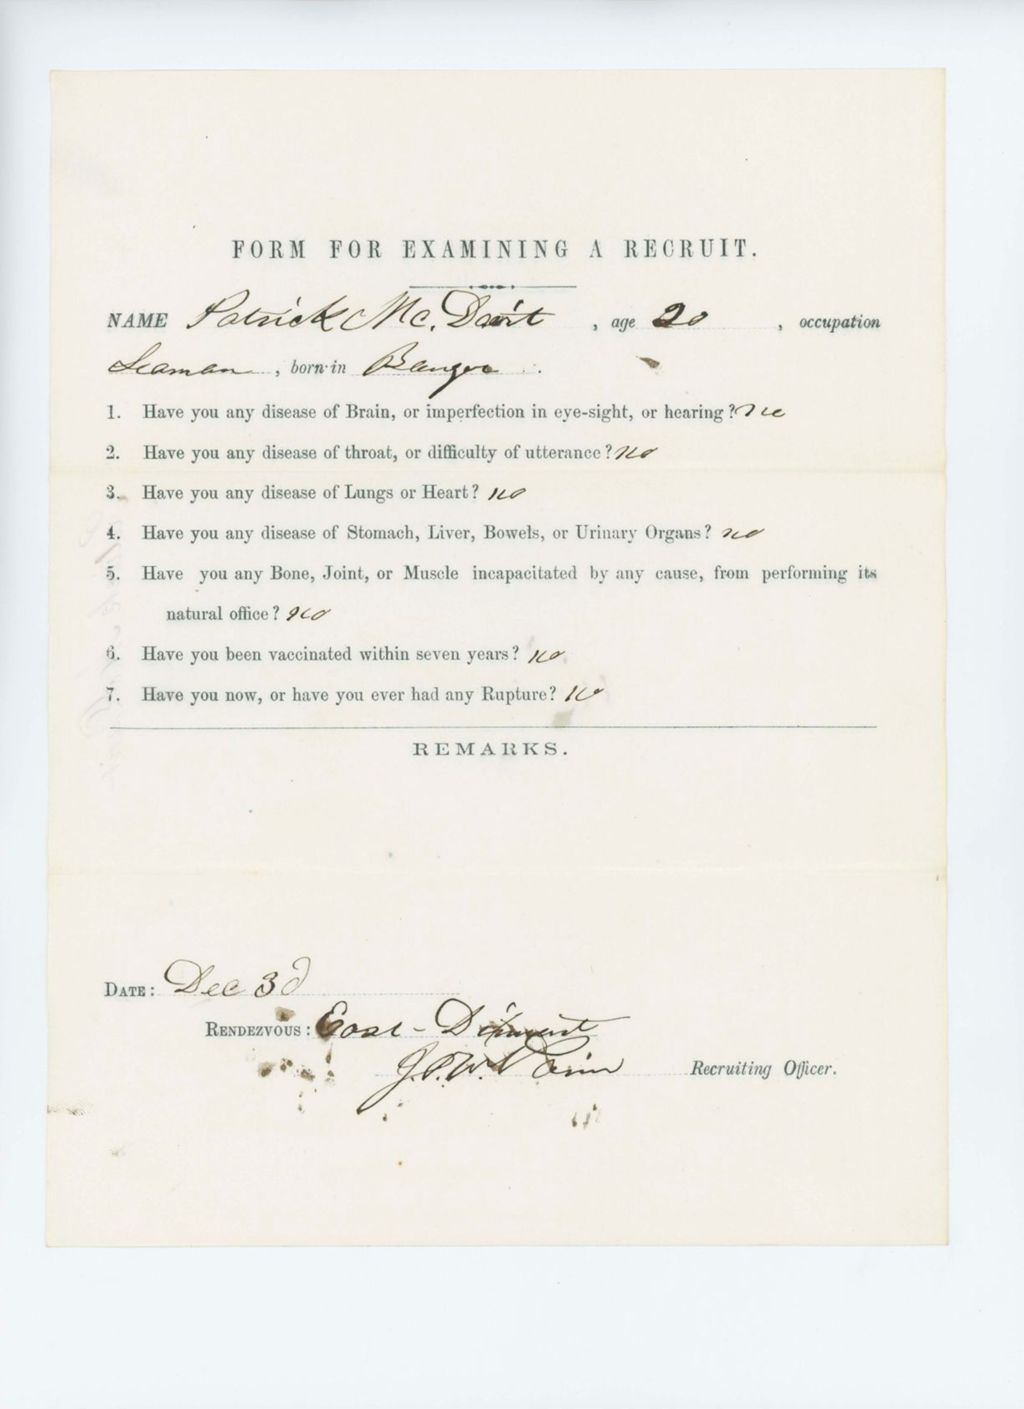 FORM FOR EXAMINING A RECRUIT.
NAME Patrick Mc. Davit , age 20 , occupation
Seaman , born in Bangor .
1. Have you any disease of Brain, or imperfection in eye-sight, or hearing? no
2. Have you any disease of throat, or difficulty of utterance? no
3. Have you any disease of Lungs or Heart? no
4. Have you any disease of Stomach, Liver, Bowels, or Urinary Organs? no
5. Have you any Bone, Joint, or Muscle incapacitated by any cause, from performing its
natural office? no
6. Have you been vaccinated within seven years? no
7. Have you now, or have you ever had any Rupture? no
REMARKS.
DATE: Dec 3d
RENDEZVOUS: East-
J. P. W. Recruiting Officer.